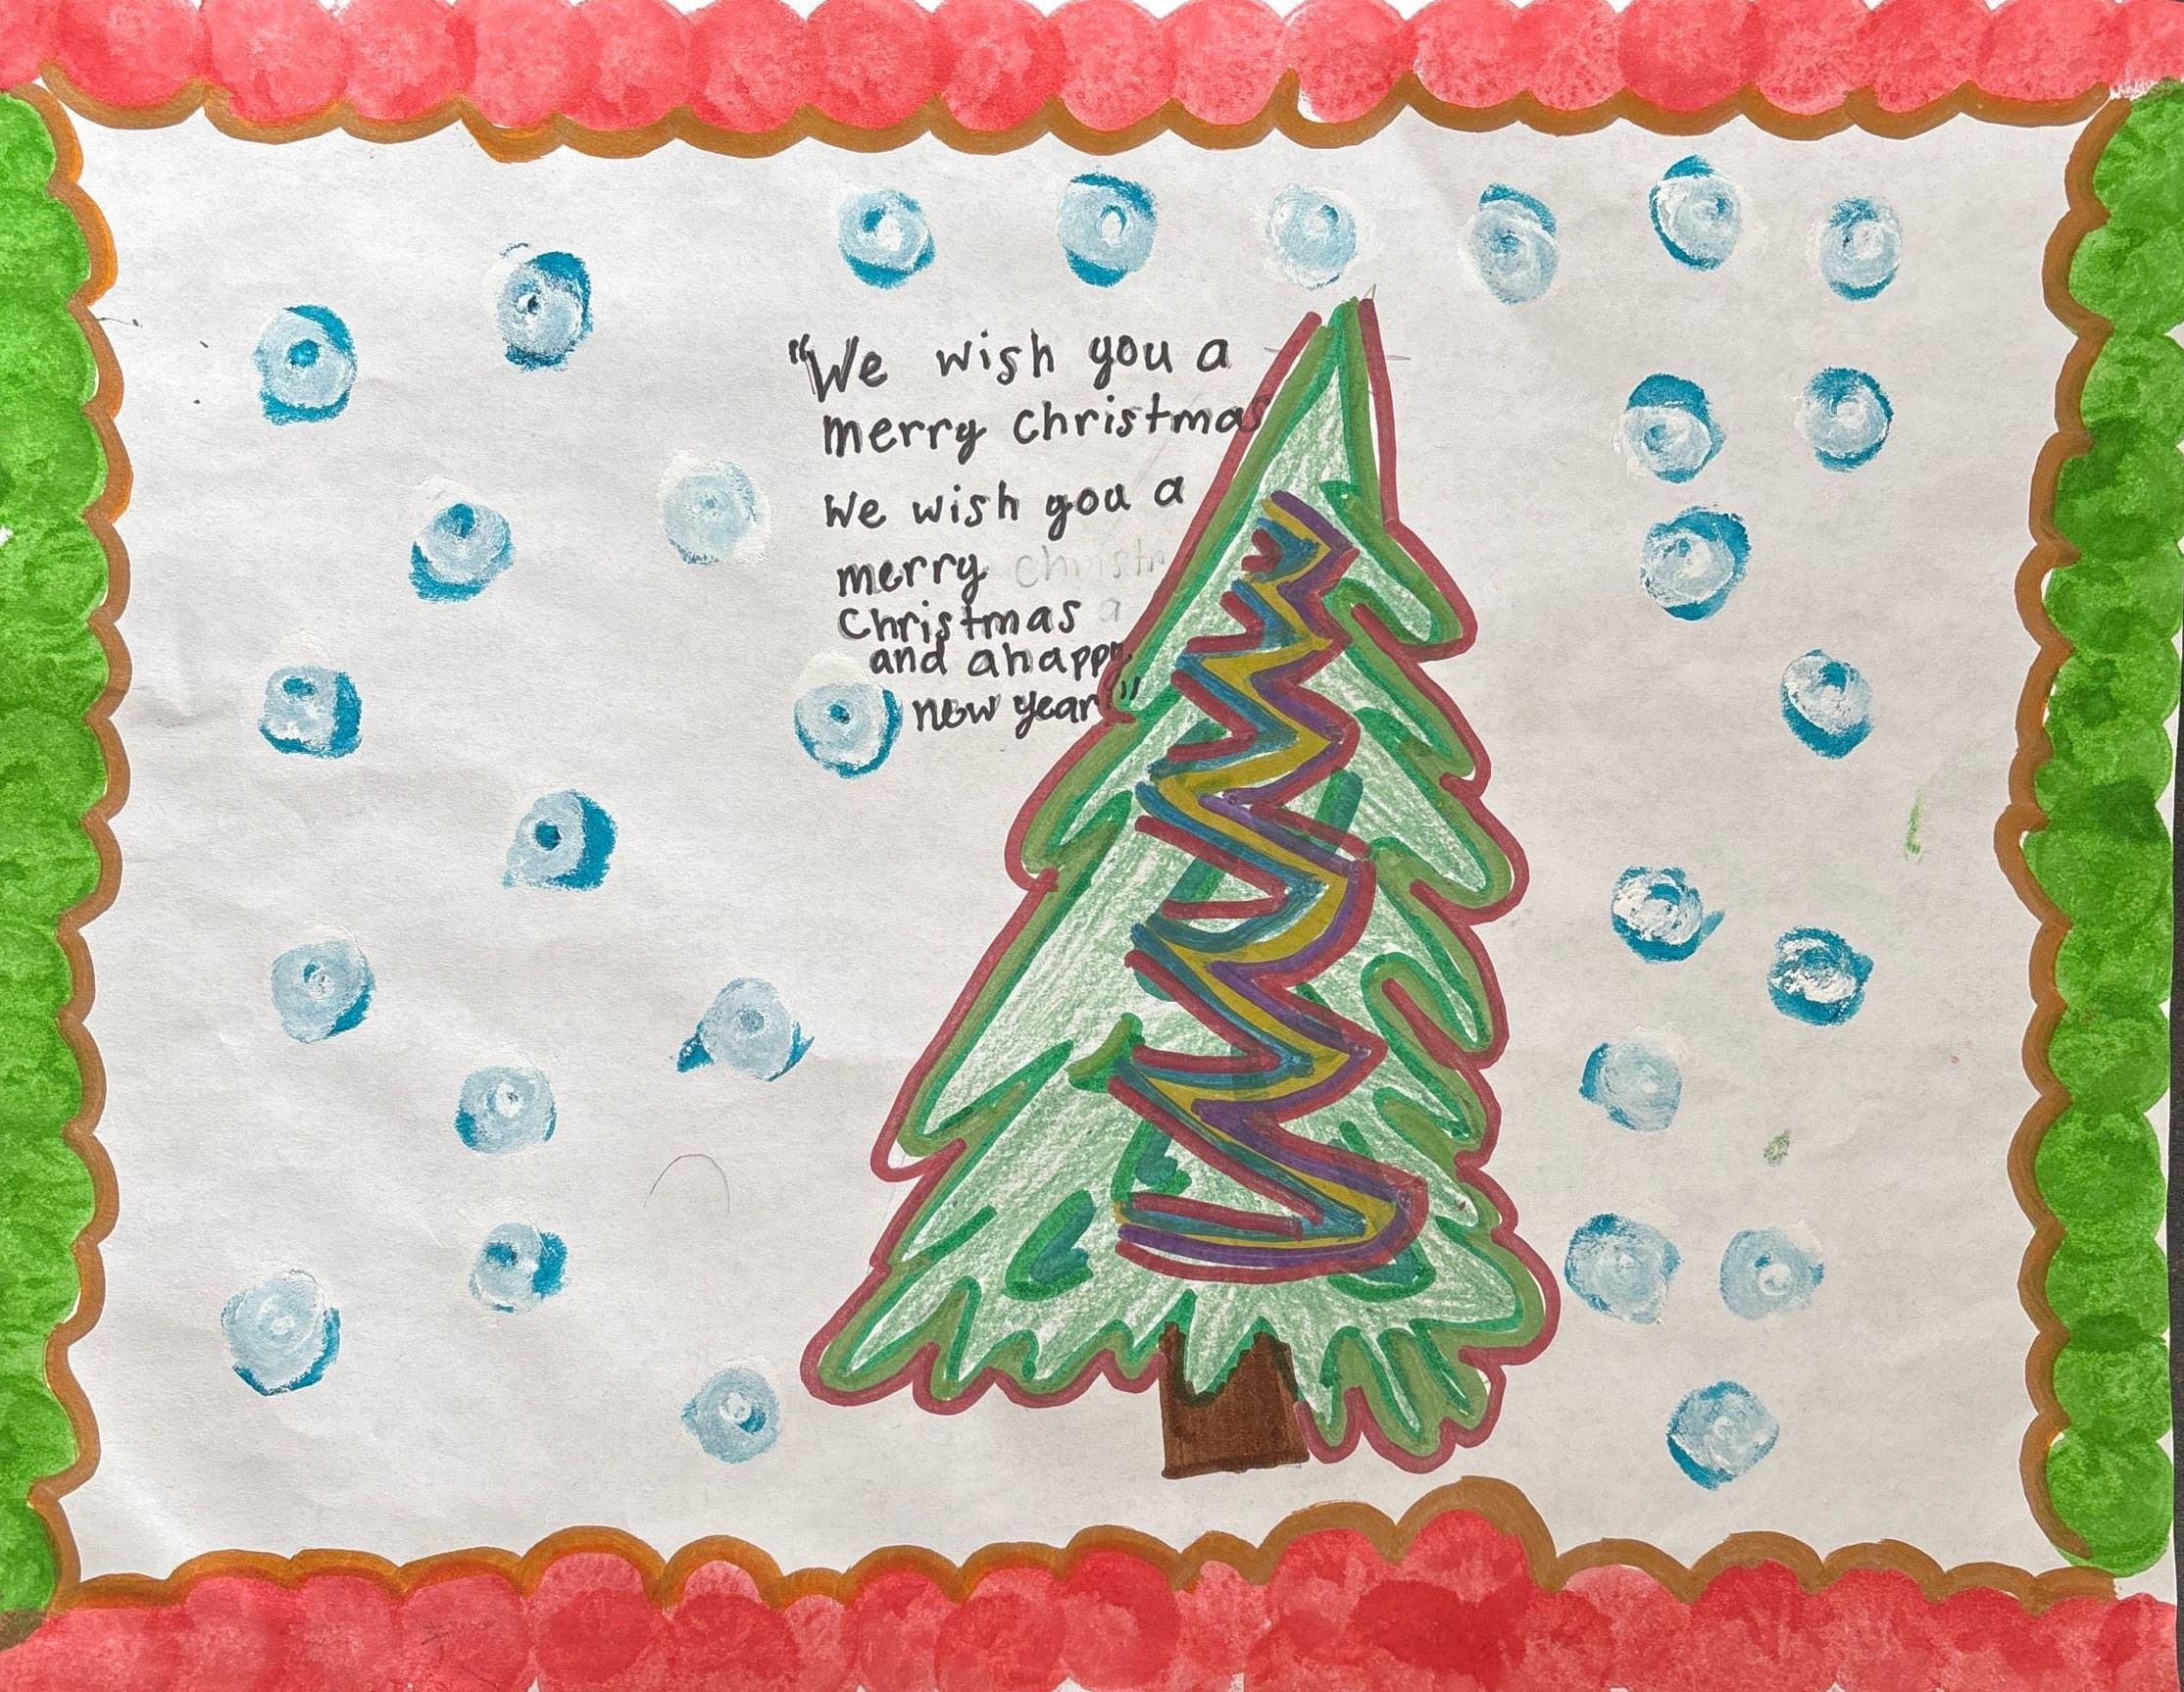 "We wish you a
merry christmas
We wish you a
merry christm
Christmas a
and a happy
new year"